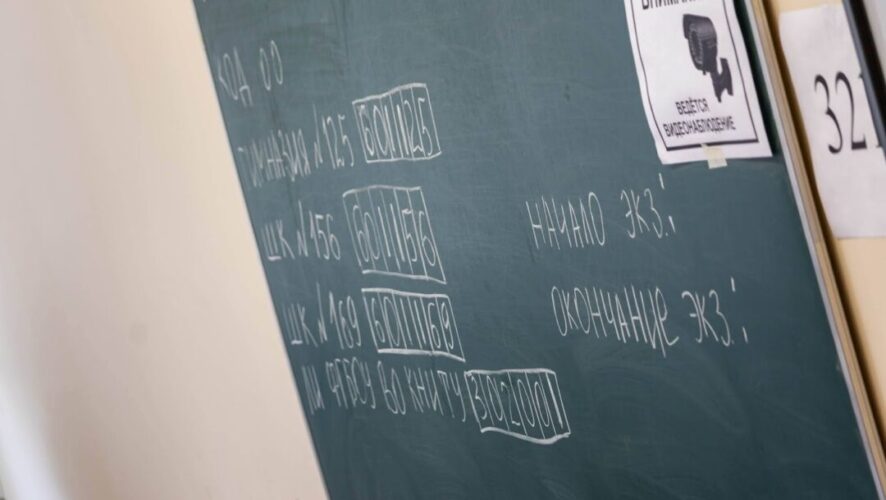 КОД ОО
ГИМНАЗИЯ №125 601125
ШК №156 601156
ШК №169 601169
ЛИ ФГБОУ ВО КНИТУ 302001
НАЧАЛО ЭКЗ.:
ОКОНЧАНИЕ ЭКЗ.:
ВЕДЁТСЯ
ВИДЕОНАБЛЮДЕНИЕ
321